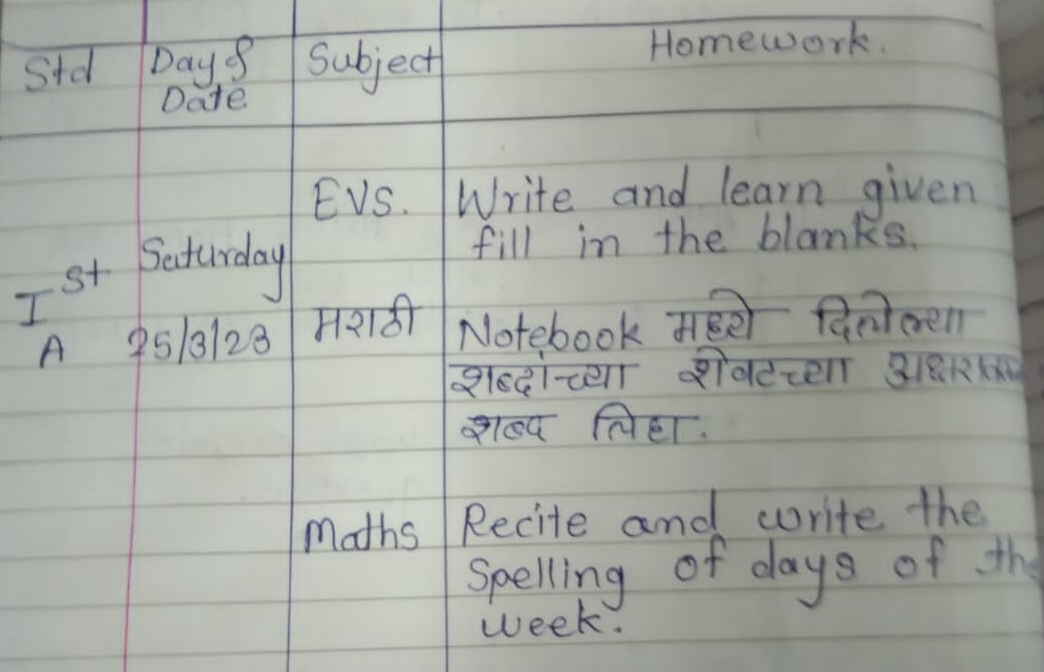 Std Day & Date Subject Homework.
EVS. Write and learn given
fill in the blanks.
Saturday
Ist A 25/3/23 मराठी Notebook मध्ये दिलेल्या
शब्दांच्या शेवटच्या
शब्द लिहा.
Maths Recite and write the
Spelling of days of the
week.